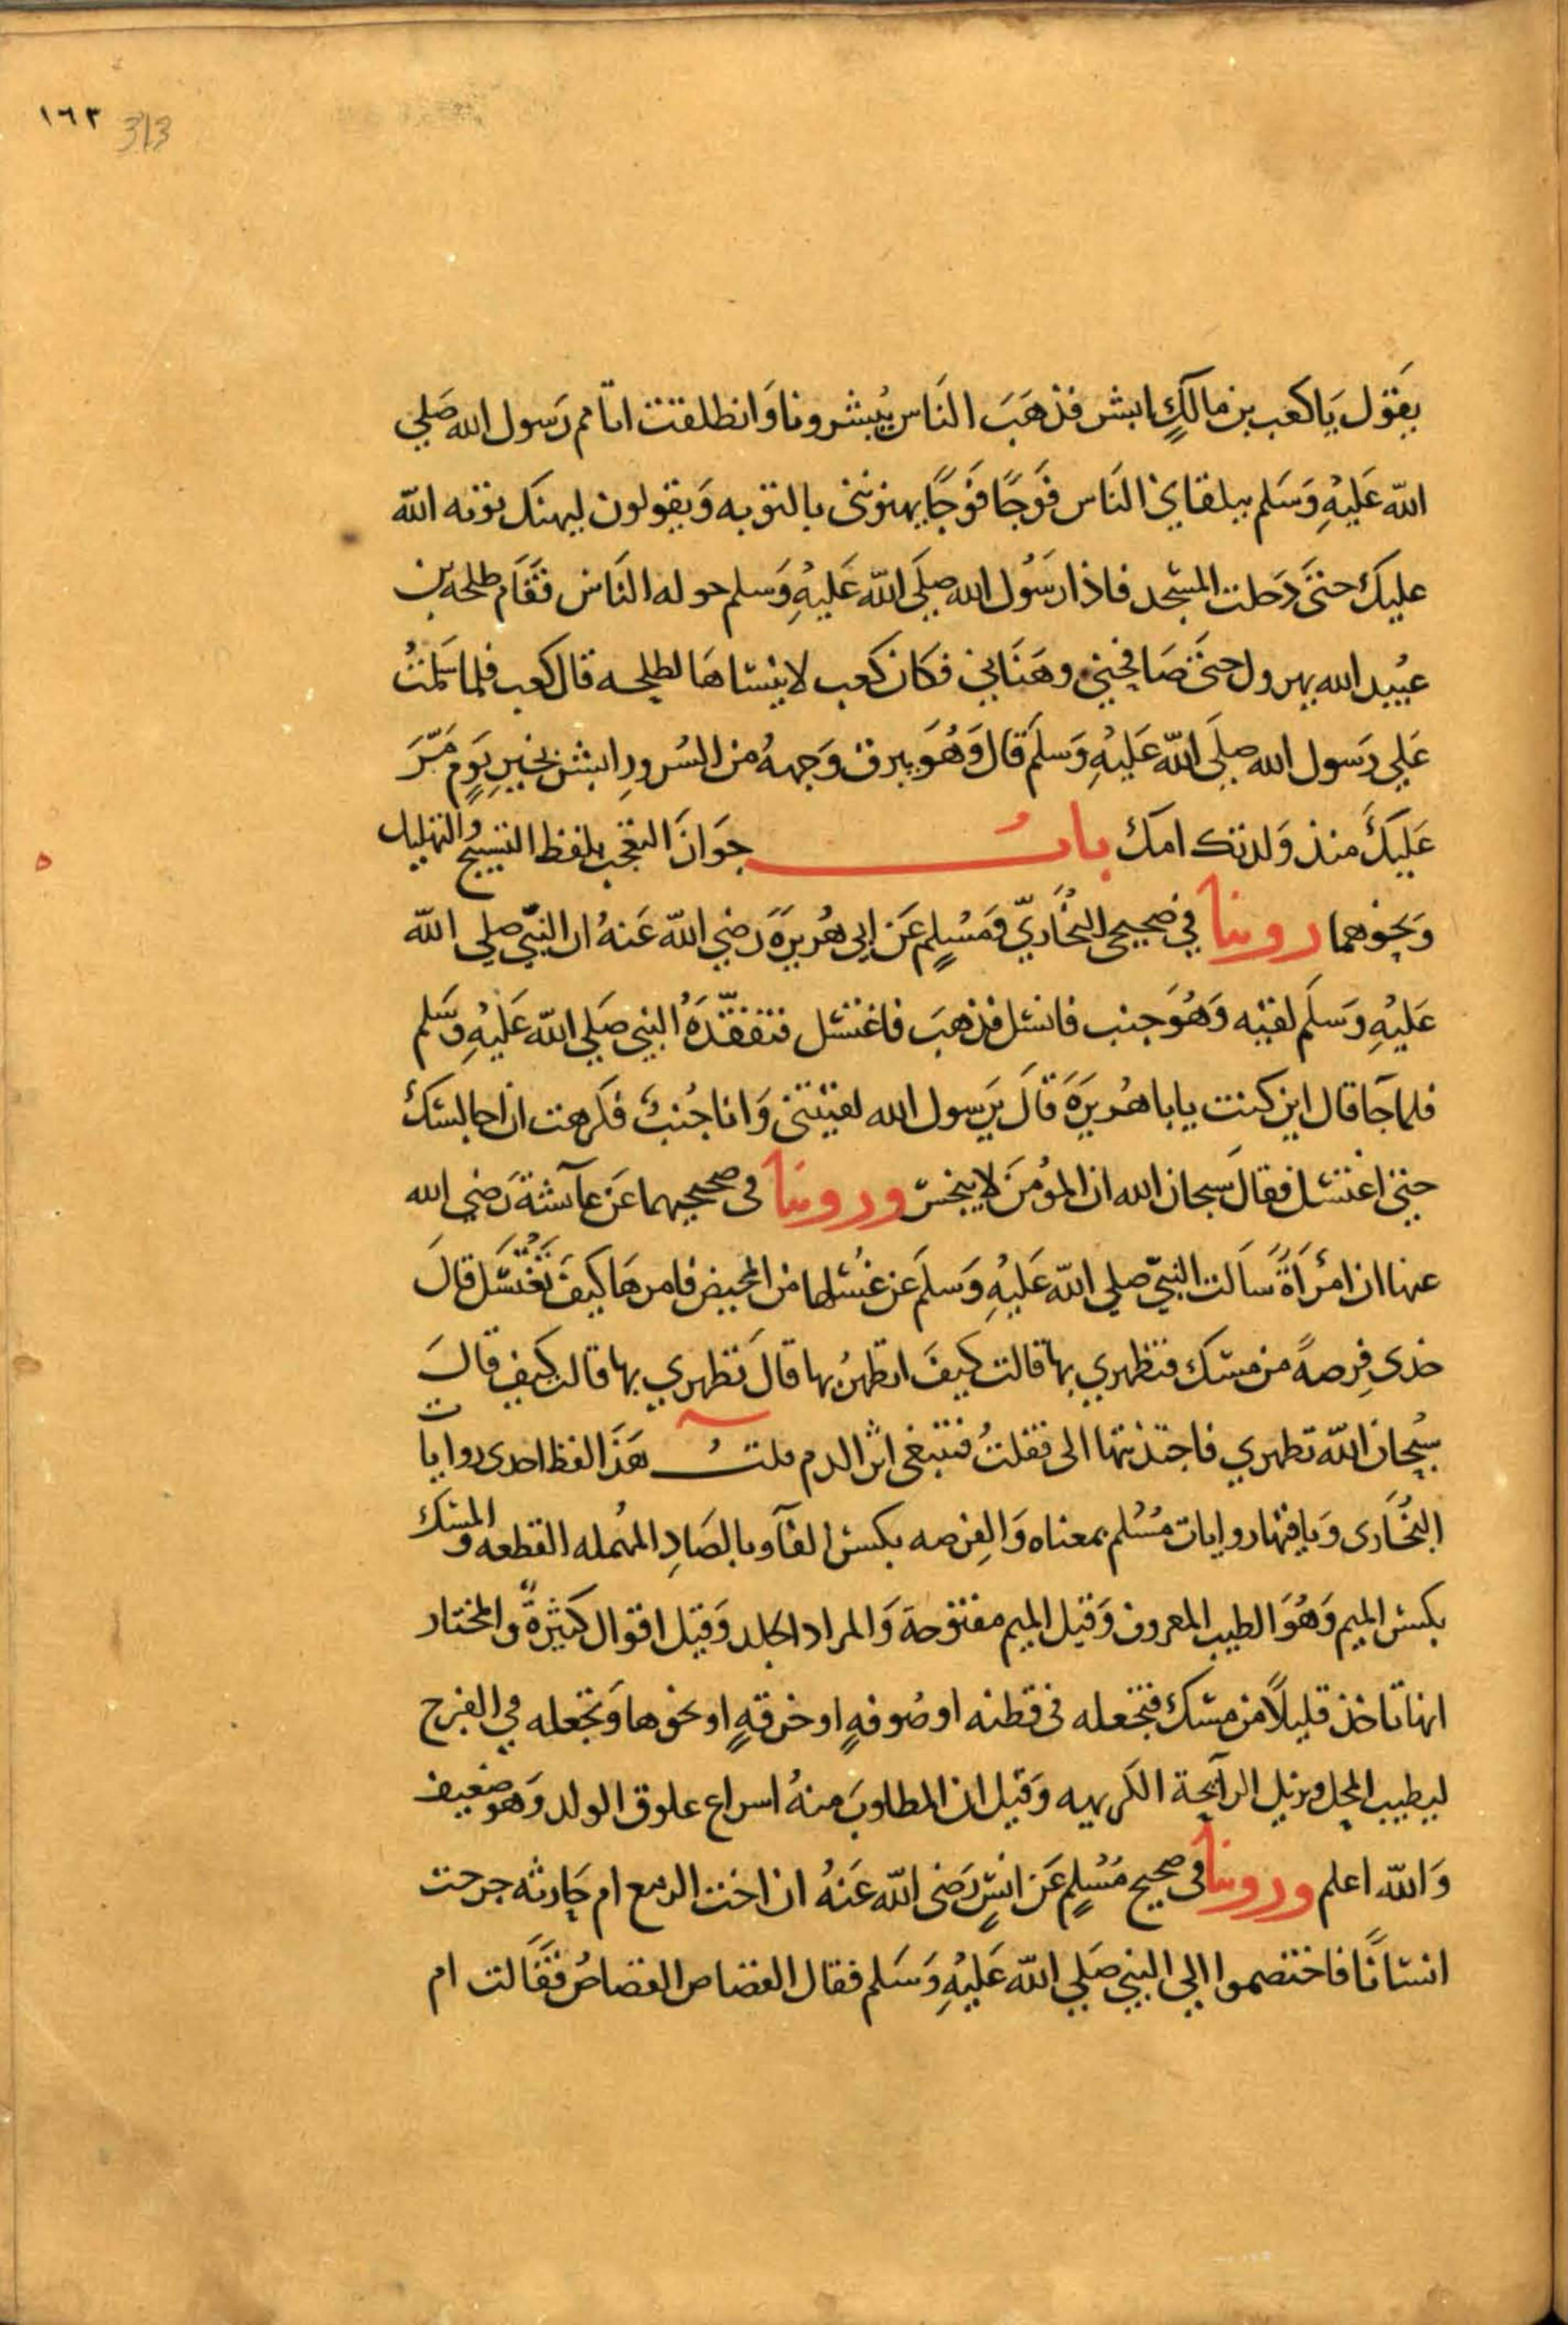 ١٦٣ 313
يقول يا كعب بن مالك ابشر فذهب الناس يبشروننا وانطلقت اتامم رسول الله صلي
الله عليه وسلم يتلقاني الناس فوجًا فوجًا يهنونني بالتوبه ويقولون ليهنك توبه الله
عليك حتى دخلت المسجد فاذا رسول الله صلى الله عليه وسلم حوله الناس فقام طلحه بن
عبيد الله يهرول حتى صافحني وهناني فكان كعب لا ينساها لطلحه قال كعب فلما سلمت
علي رسول الله صلى الله عليه وسلم قال وهو يبرق وجهه من السرور ابشر بخير يوم مر
عليك منذ ولدتك امك باب جواز التعجب بلفظ التسبيح والتهليل
ونحوهما روينا في صحيحي البخاري ومسلم عن ابي هريرة رضي الله عنه ان النبي صلي الله
عليه وسلم لقيه وهو جنب فانسل فذهب فاغتسل فتفقده النبي صلي الله عليه وسلم
فلما جآ قال اين كنت يابا هريرة قال يرسول الله لقيتني وانا جنب فكرهت ان اجالسك
حتي اغتسل فقال سبحان الله ان المؤمن لا ينجس وروينا في صحيحيهما عن عآئشة رضي الله
عنها ان امرأة سالت النبي صلي الله عليه وسلم عن غسلها من المحيض فامرها كيف تغتسل قال
خذي فرصة من مسك فتطهري بها قالت كيف اتطهر بها قال تطهري بها قالت كيف قال
سبحان الله تطهري فاجتذبتها الى فقلت تتبغي اثر الدم قلت هذا لفظ احدى روايات
البخاري وباقيها روايات مسلم بمعناه والفرصه بكسر الفآ وبالصاد المهمله القطعه والمسك
بكسر الميم وهو الطيب المعروف وقيل الميم مفتوحة والمراد الجلد وقيل اقوال كثيرة والمختار
انها تاخذ قليلًا من مسك فتجعله في قطنه او صوفه او خرقه او نحوها وتجعله في الفرج
ليطيب المحل ويزيل الرآيحة الكريهه وقيل ان المطلوب منه اسراع علوق الولد وهو ضعيف
والله اعلم وروينا في صحيح مسلم عن انس رضى الله عنه ان اخت الربيع ام حارثه جرحت
انسانًا فاختصموا الي النبي صلي الله عليه وسلم فقال القصاص القصاص فقالت ام